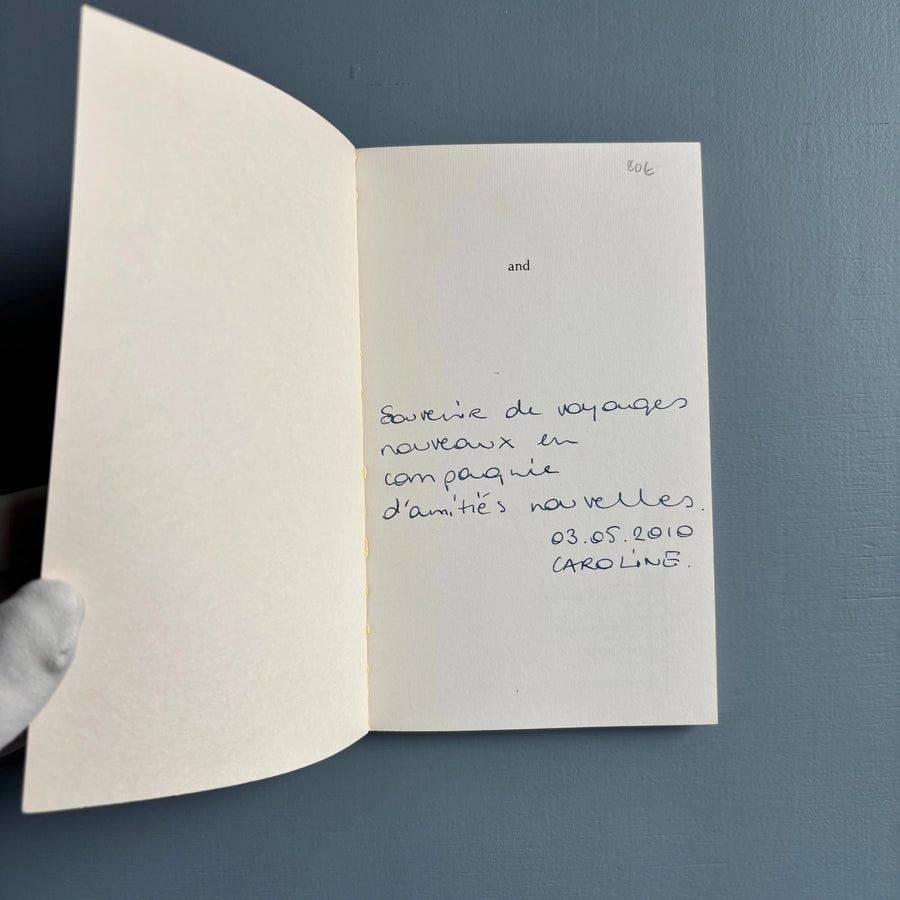 80€
and
Souvenir de voyages
nouveaux en
compagnie
d'amitiés nouvelles.
03.05.2010
CAROLINE.